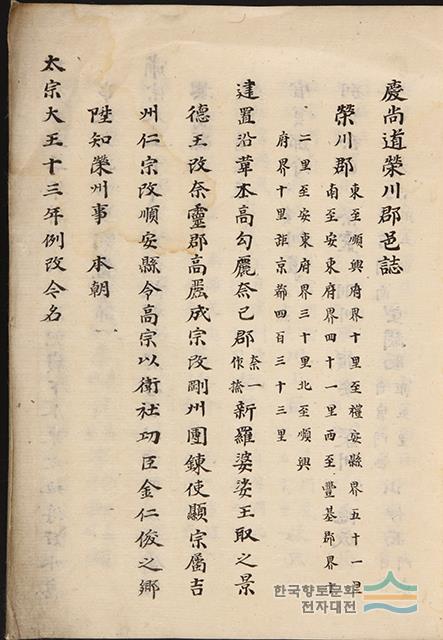 慶尚道榮川郡邑誌
榮川郡 東至順興府界十里至禮安縣界五十一里
南至安東府界四十一里西至豐基郡界十
二里至安東府界三十里北至順興
府界十里距京都四百三十三里
建置沿革本高勾麗奈已郡奈一作㮈新羅婆娑王取之景
德王改奈靈郡高麗成宗改剛州團鍊使顯宗屬吉
州仁宗改順安縣令高宗以衛社功臣金仁俊之鄉
陞知榮州事 本朝
太宗大王十三年例改今名
한국향토문화
전자대전